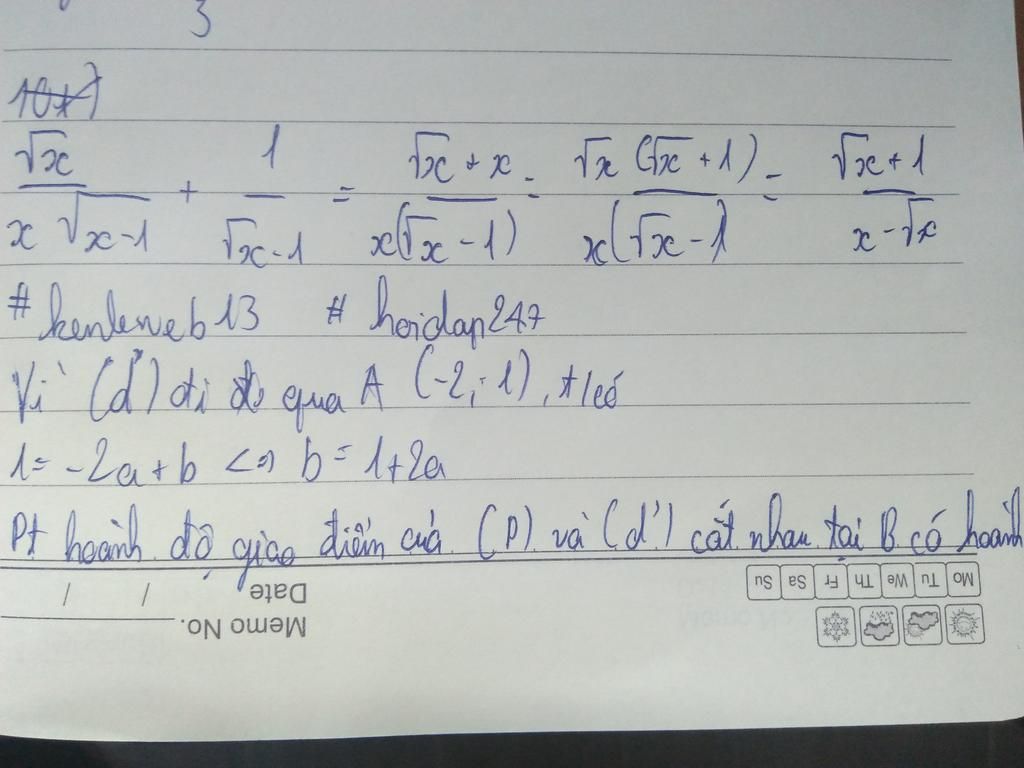 3
10x7
√x / x√x-1 + 1 / √x-1 = √x + x / x(√x-1) = √x(√x+1) / x(√x-1) = √x+1 / x-√x
# kenleweb13 # hoidap247
Vì (d') đi qua A (-2;-1), tacó
1 = -2a + b <=> b = 1+2a
Pt hoành độ giao điểm của (P) và (d') cắt nhau tại B có hoành
Mo Tu We Th Fr Sa Su
Date / /
Memo No.